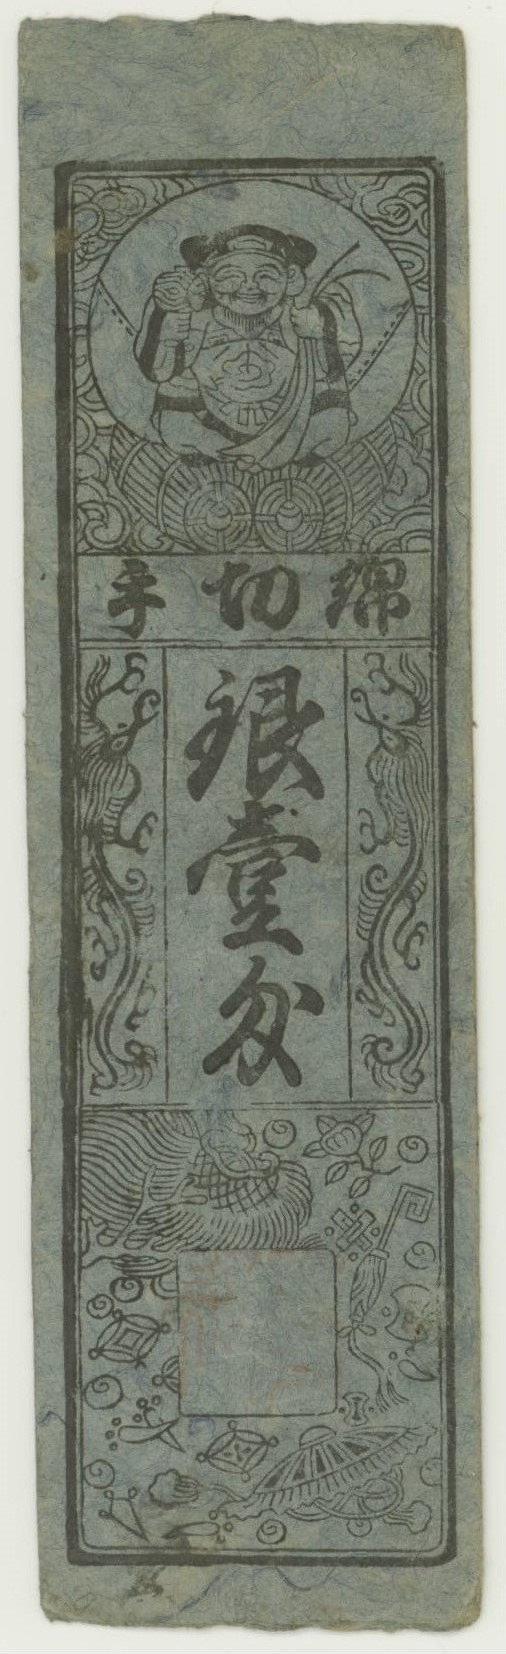 綿切手
銀壹匁